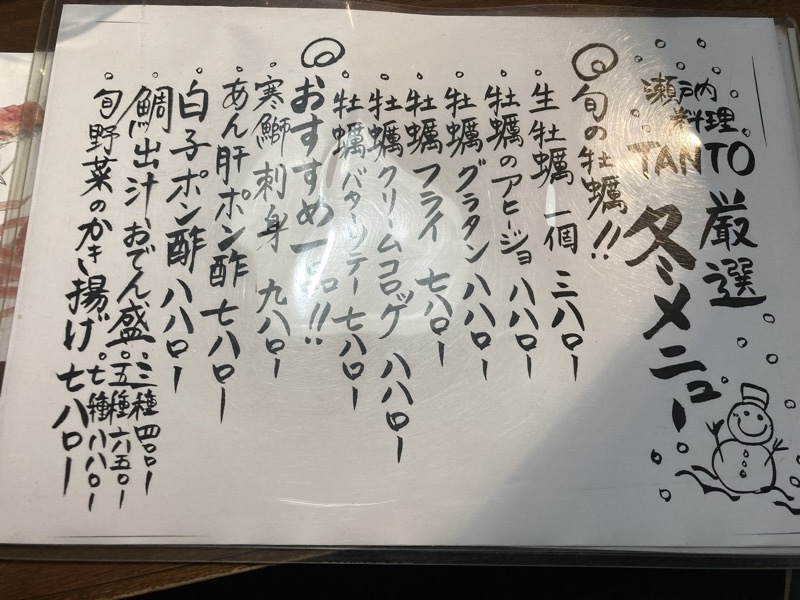 瀬戸内
料理
TANTO
厳選
冬メニュー
旬の牡蠣!!
。生牡蠣 一個 三八〇ー
。牡蠣のアヒージョ 八八〇ー
。牡蠣グラタン 八八〇ー
。牡蠣フライ 七八〇ー
。牡蠣クリームコロッケ 八八〇ー
。牡蠣バターソテー 七八〇ー
おすすめ一品!!
。寒鰤刺身 九八〇ー
。あん肝ポン酢 七八〇ー
。白子ポン酢 八八〇ー
。鯛出汁おでん盛
。三種四〇〇ー
。五種六五〇ー
。七種八八〇ー
。旬野菜のかき揚げ 七八〇ー